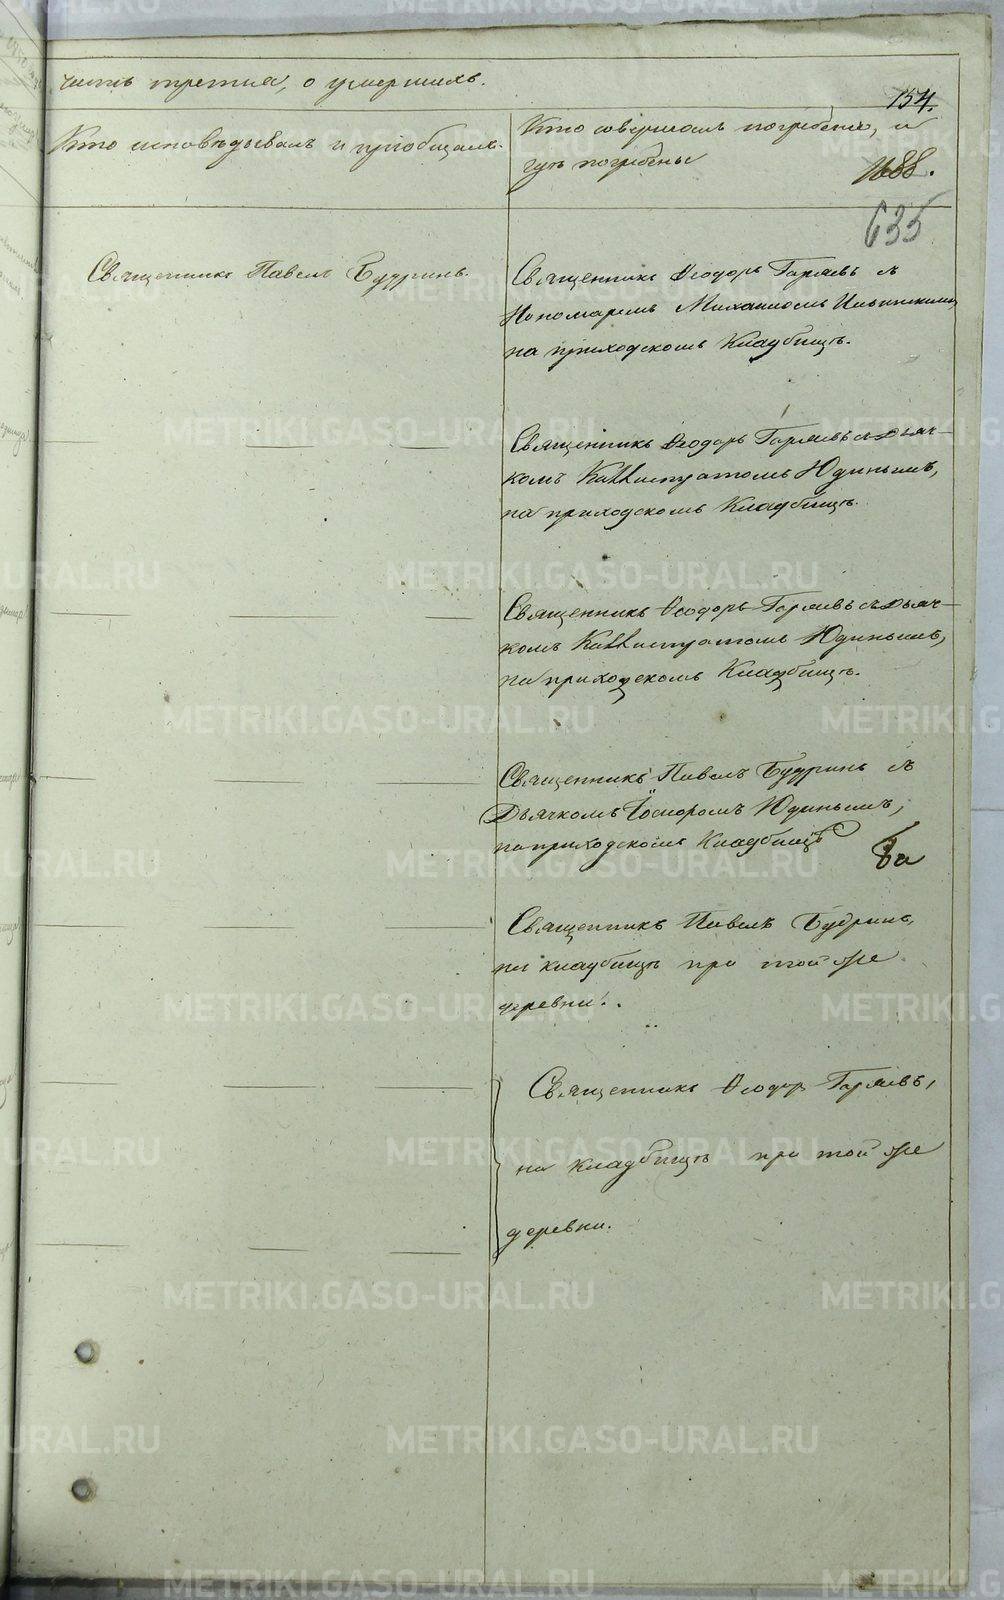 часть третия, о умершихъ.
154.
Кто исповѣдывалъ и пріобщалъ.
Кто совершалъ погребеніе, и
гдѣ погребены
1688.
635
Священникъ Павелъ Будринъ.
Священникъ Ѳеодоръ Гаряевъ съ
Пономаремъ Михаиломъ Ильинскимъ,
на приходскомъ Кладбищѣ.
Священникъ Ѳеодоръ Гаряевъ съ Дьяч-
комъ Каллистратомъ Юдинымъ,
на приходскомъ Кладбищѣ.
Священникъ Ѳеодоръ Гаряевъ съ Дьяч-
комъ Каллистратомъ Юдинымъ,
на приходскомъ Кладбищѣ.
Священникъ Павелъ Будринъ съ
Дьячкомъ Юдинымъ,
на приходскомъ Кладбищѣ
Священникъ Павелъ Будринъ,
на кладбищѣ при той же
деревни.
Священникъ Ѳеодоръ Гаряевъ,
на кладбищѣ при той же
деревни.
METRIKI.GASO-URAL.RU